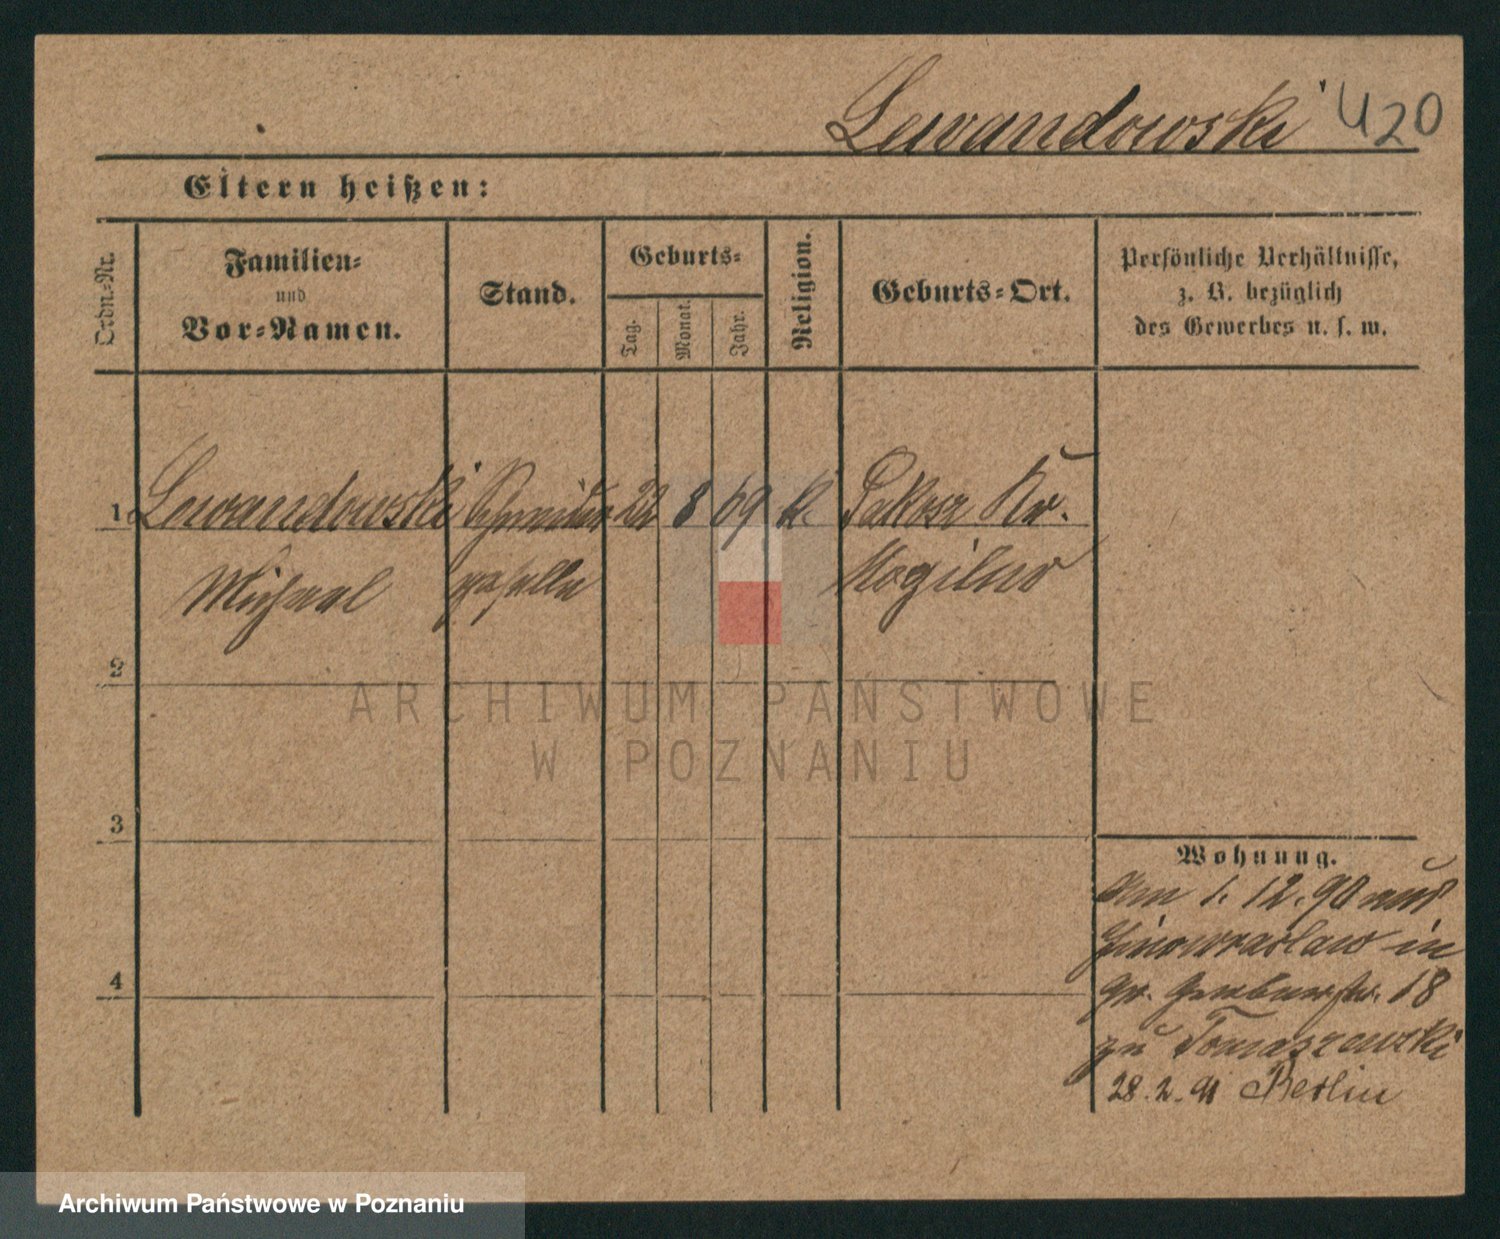 Lewandowski 420
Eltern heißen:
Ordn.-Nr.
Familien-
und
Vor-Namen.
Stand.
Geburts-
Tag.
Monat.
Jahr.
Religion.
Geburts-Ort.
Persönliche Verhältnisse,
z. B. bezüglich
des Gewerbes u. s. w.
1 Lewandowski Schneider 22 8 69 k. Pakosz Kr.
Michael geselle Mogilno
2
3
4
Wohnung.
Am 1. 12. 90 aus
Inowraclaw in
gr. Gerberstr. 18
zu Tomaszewski
28. 2. 91 Berlin
ARCHIWUM PAŃSTWOWE
W POZNANIU
Archiwum Państwowe w Poznaniu